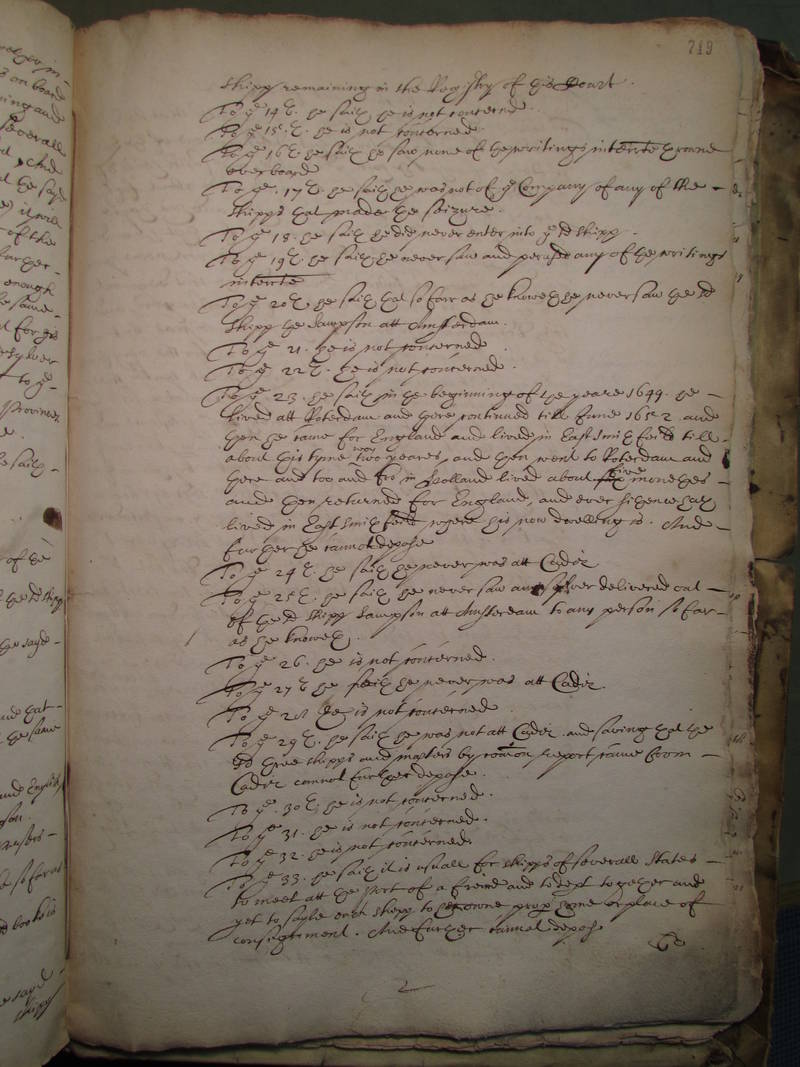 719
shipp remaining in the Regstry of this Court.
To ye 14th. he saith he is not concerned
To ye 15th. he is not concerned
To ye 16th. he saith he saw none of the writings interrte throwne
overboard
To ye. 17th he saith he was not of ye Company of any of the
shipps that made the seizure.
To ye 18. he saith he did never enter into ye sd shipp.
To ye 19th. he saith he never saw and perused any of the writings
interrte
To ye 20th. he saith that so farr as he knoweth he never saw the sd
shipp the Sampson att Amsterdam.
To ye 21. he is not concerned.
To ye 22th. he is not concerned.
To ye 23. he saith in the beginning of the yeare 1649. he
lived att Roterdam and there continued till June 1652 and
then he came for England and lived in East Smithfeild till
about this tyme two yeares, and then went to Roterdam and
there and too and fro in Holland lived about five monethes
and then returned for England, and ever sithence hath
lived in East Smithfeild where his now dwelling is. And
further he cannot depose
To ye 24th. he saith he never was att Cadiz
To ye 25th. he saith he never saw any silver delivered out
of the sd shipp Sampson att Amsterdam to any person so far
as he knoweth.
To ye 26. he is not concerned.
To ye 27th he saith he never was att Cadiz.
To ye 28 he is not concerned.
To ye 29th. he saith he was not att Cadiz. and saving that the
sd three shipps and masters by comon report came from
Cadiz cannot further depose.
To ye. 30th. he is not concerned.
To ye. 31. he is not concerned.
To ye 32. he is not concerned.
To ye 33. he saith it is usuall for shipps of severall States
to meet att the port of a freind and to dept together and
yet to sayle each shipp to theire owne proper home or place of
consignment. And further cannot depose
2